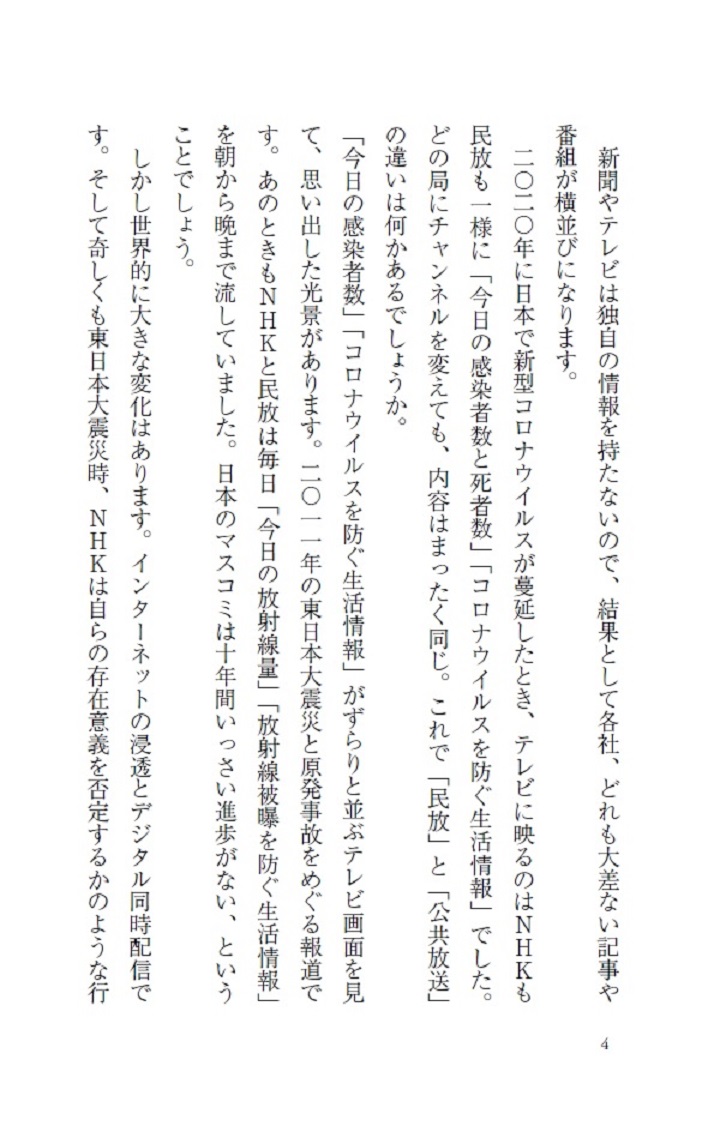 新聞やテレビは独自の情報を持たないので、結果として各社、どれも大差ない記事や
番組が横並びになります。
　二〇二〇年に日本で新型コロナウイルスが蔓延したとき、テレビに映るのはNHKも
民放も一様に「今日の感染者数と死者数」「コロナウイルスを防ぐ生活情報」でした。
どの局にチャンネルを変えても、内容はまったく同じ。これで「民放」と「公共放送」
の違いは何かあるでしょうか。
「今日の感染者数」「コロナウイルスを防ぐ生活情報」がずらりと並ぶテレビ画面を見
て、思い出した光景があります。二〇一一年の東日本大震災と原発事故をめぐる報道で
す。あのときもNHKと民放は毎日「今日の放射線量」「放射線被曝を防ぐ生活情報」
を朝から晩まで流していました。日本のマスコミは十年間いっさい進歩がない、という
ことでしょう。
　しかし世界的に大きな変化はあります。インターネットの浸透とデジタル同時配信で
す。そして奇しくも東日本大震災時、NHKは自らの存在意義を否定するかのような行
4